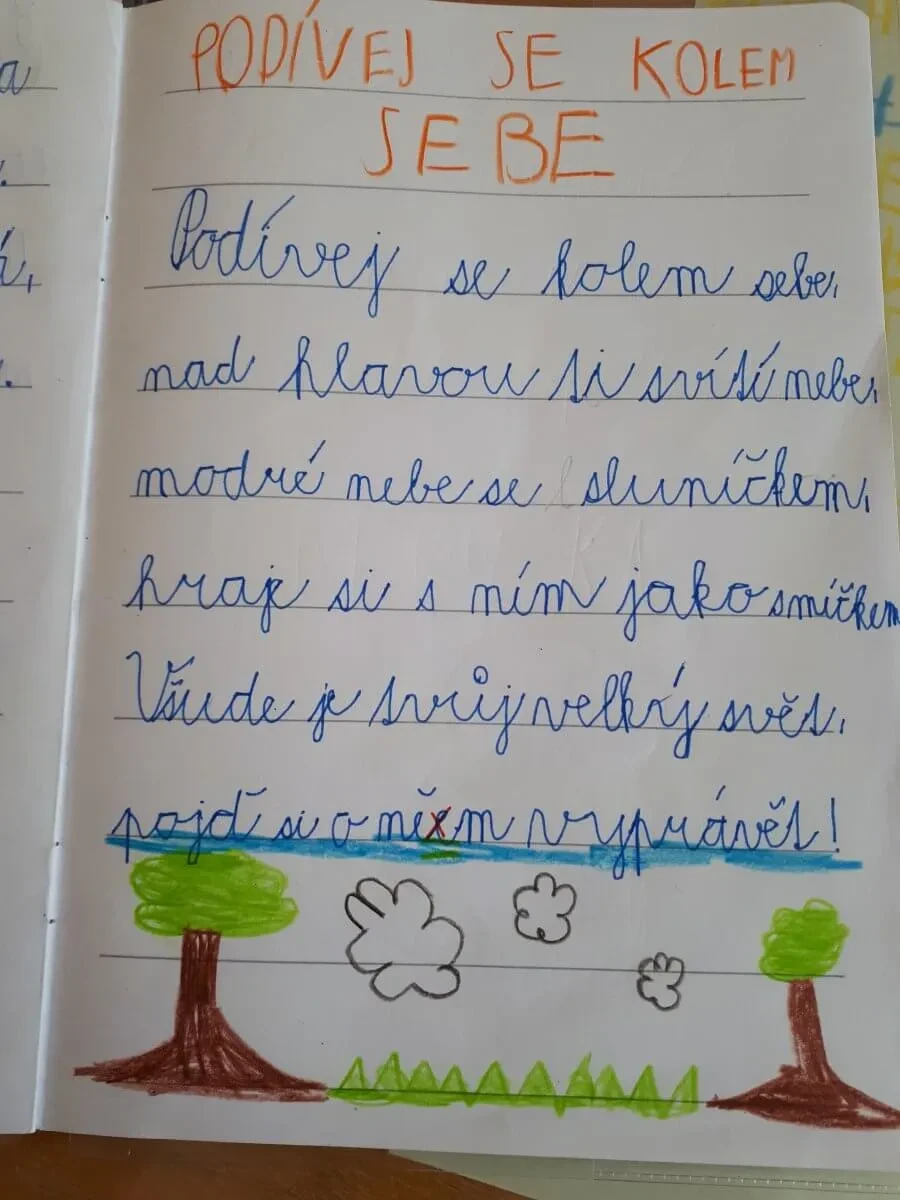 PODÍVEJ SE KOLEM
SEBE
Podívej se kolem sebe,
nad hlavou ti svítí nebe,
modré nebe se sluníčkem,
hraje si s ním jako s míčkem
Všude je tvůj velký svět,
pojď si o něm vyprávět!